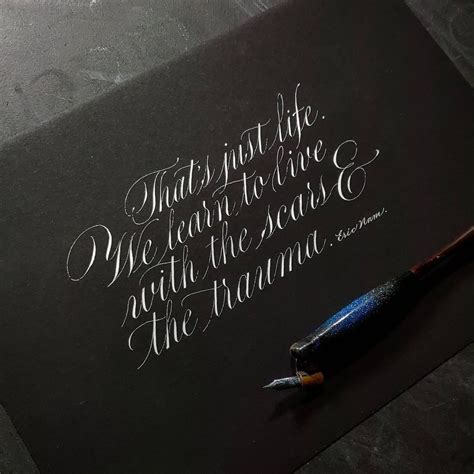 That's just life.
We learn to live
with the scars &
the trauma. Eric Nam.